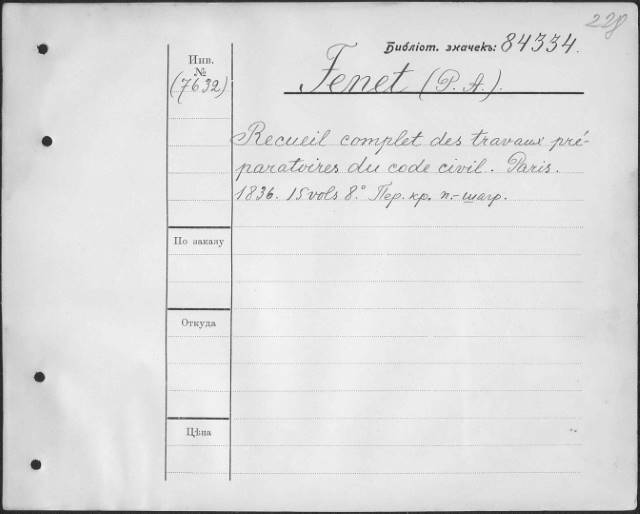 228
Библіот. значекъ: 84334.
Инв.
№
(7632)
Fenet (P. A.).
Recueil complet des travaux pré-
paratoires du code civil. Paris.
1836. 15 vols 8°. Пер. кр. п.-шагр.
По заказу
Откуда
Цѣна